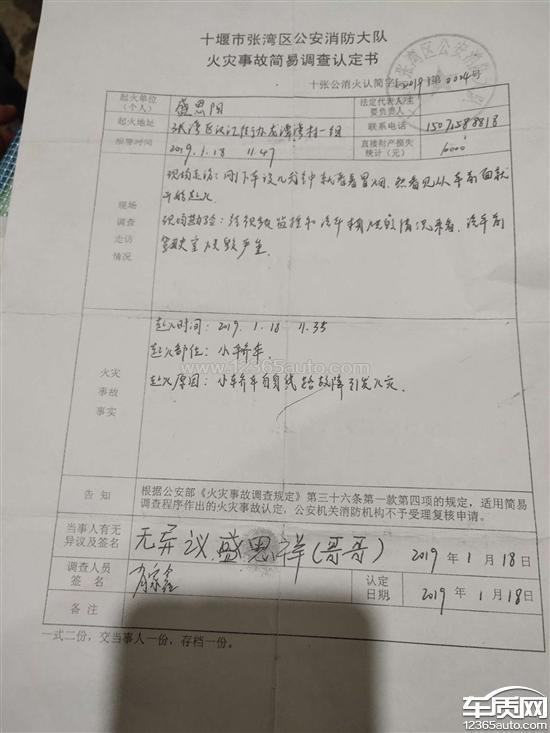 十堰市张湾区公安消防大队
火灾事故简易调查认定书
十张公消火认简字[2019]第0004号
起火单位(个人) 盛思阳 法定代表人/主要负责人
起火地址 张湾区汉江街办龙潭湾村一组 联系电话
报警时间 2019.1.18 11.47 直接财产损失统计(元) 10000
现场调查走访情况
现场走访:刚下车没几分钟就看着冒烟,然看见从车前面就开始起火
现场勘验:经视频监控和汽车损毁的情况来看,汽车前驾驶室烧毁严重。
火灾事故事实
起火时间:2019.1.18 11.35
起火部位:小轿车
起火原因:小轿车自身线路故障引发火灾。
www.12365auto.com
告知 根据公安部《火灾事故调查规定》第三十六条第一款第四项的规定,适用简易
调查程序作出的火灾事故认定,公安机关消防机构不予受理复核申请。
当事人有无异议及签名 无异议 盛思祥(哥哥) 2019年1月18日
调查人员签名 认定日期 2019年1月18日
备注
一式二份,交当事人一份,存档一份。
车质网
12365auto.com